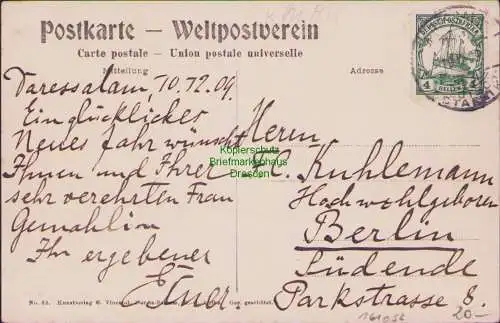 Postkarte — Weltpostverein
Carte postale — Union postale universelle
Mitteilung
Adresse
DEUTSCH-OSTAFRIKA
4 HELLER 4
Daressalam, 10.12.09.
Ein glücklicher
Neues Jahr wünscht
Ihnen und Ihrer
sehr verehrten Frau
Gemahlin
Ihr ergebener
Herrn
Kuhlemann
Hochwohlgeboren
Berlin
Südende
Parkstrasse 8.
Kopierschutz
Briefmarkenhaus
Dresden
No. 54. Kunstverlag C. Vincenti, Ges. geschützt.
161052
20—